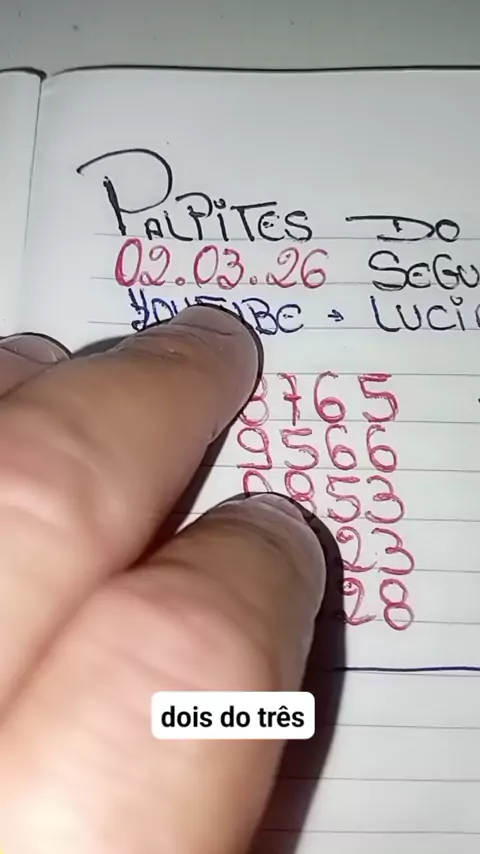 PALPITES DO
02.03.26 SEGU
YOUTUBE → LUCI
8765
9566
0853
23
28
dois do três